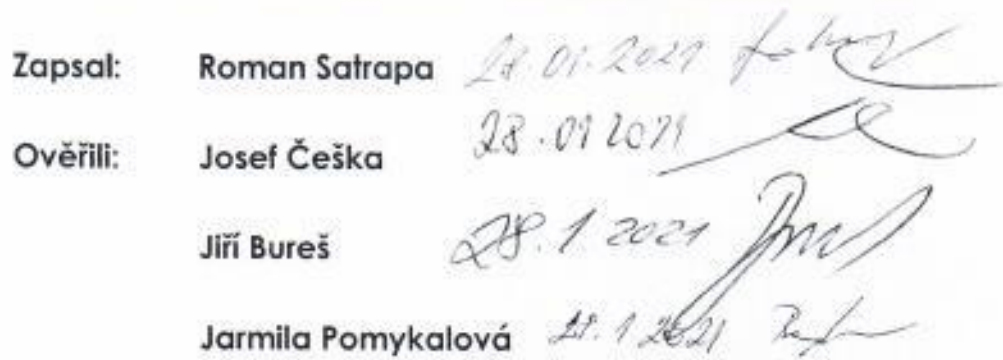 Zapsal: Roman Satrapa 28.01.2021
Ověřili: Josef Češka 28.01 2021
Jiří Bureš 28.1 2021
Jarmila Pomykalová 28.1 2021